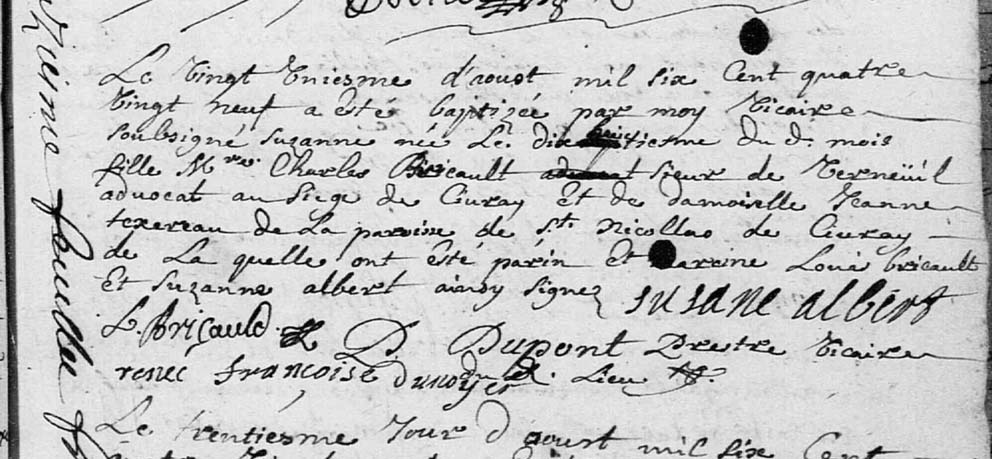 Le vingt uniesme d'aoust mil six Cent quatre
vingt neuf a esté baptizée par moy vicaire
soubsigné suzanne née Le du d. mois
fille Mre Charles Bricault sieur de Verneüil
advocat au siege de Civray et de damoiselle Jeanne
texereau de La paroisse de St. Nicollas de Civray
de La quelle ont esté parin et maraine Louis bricault
et suzanne albert ainsy signez susane albert
L. Bricauld D. Dupont Prestre vicaire
renée françoise
Le trentiesme Jour d'aoust mil six Cent